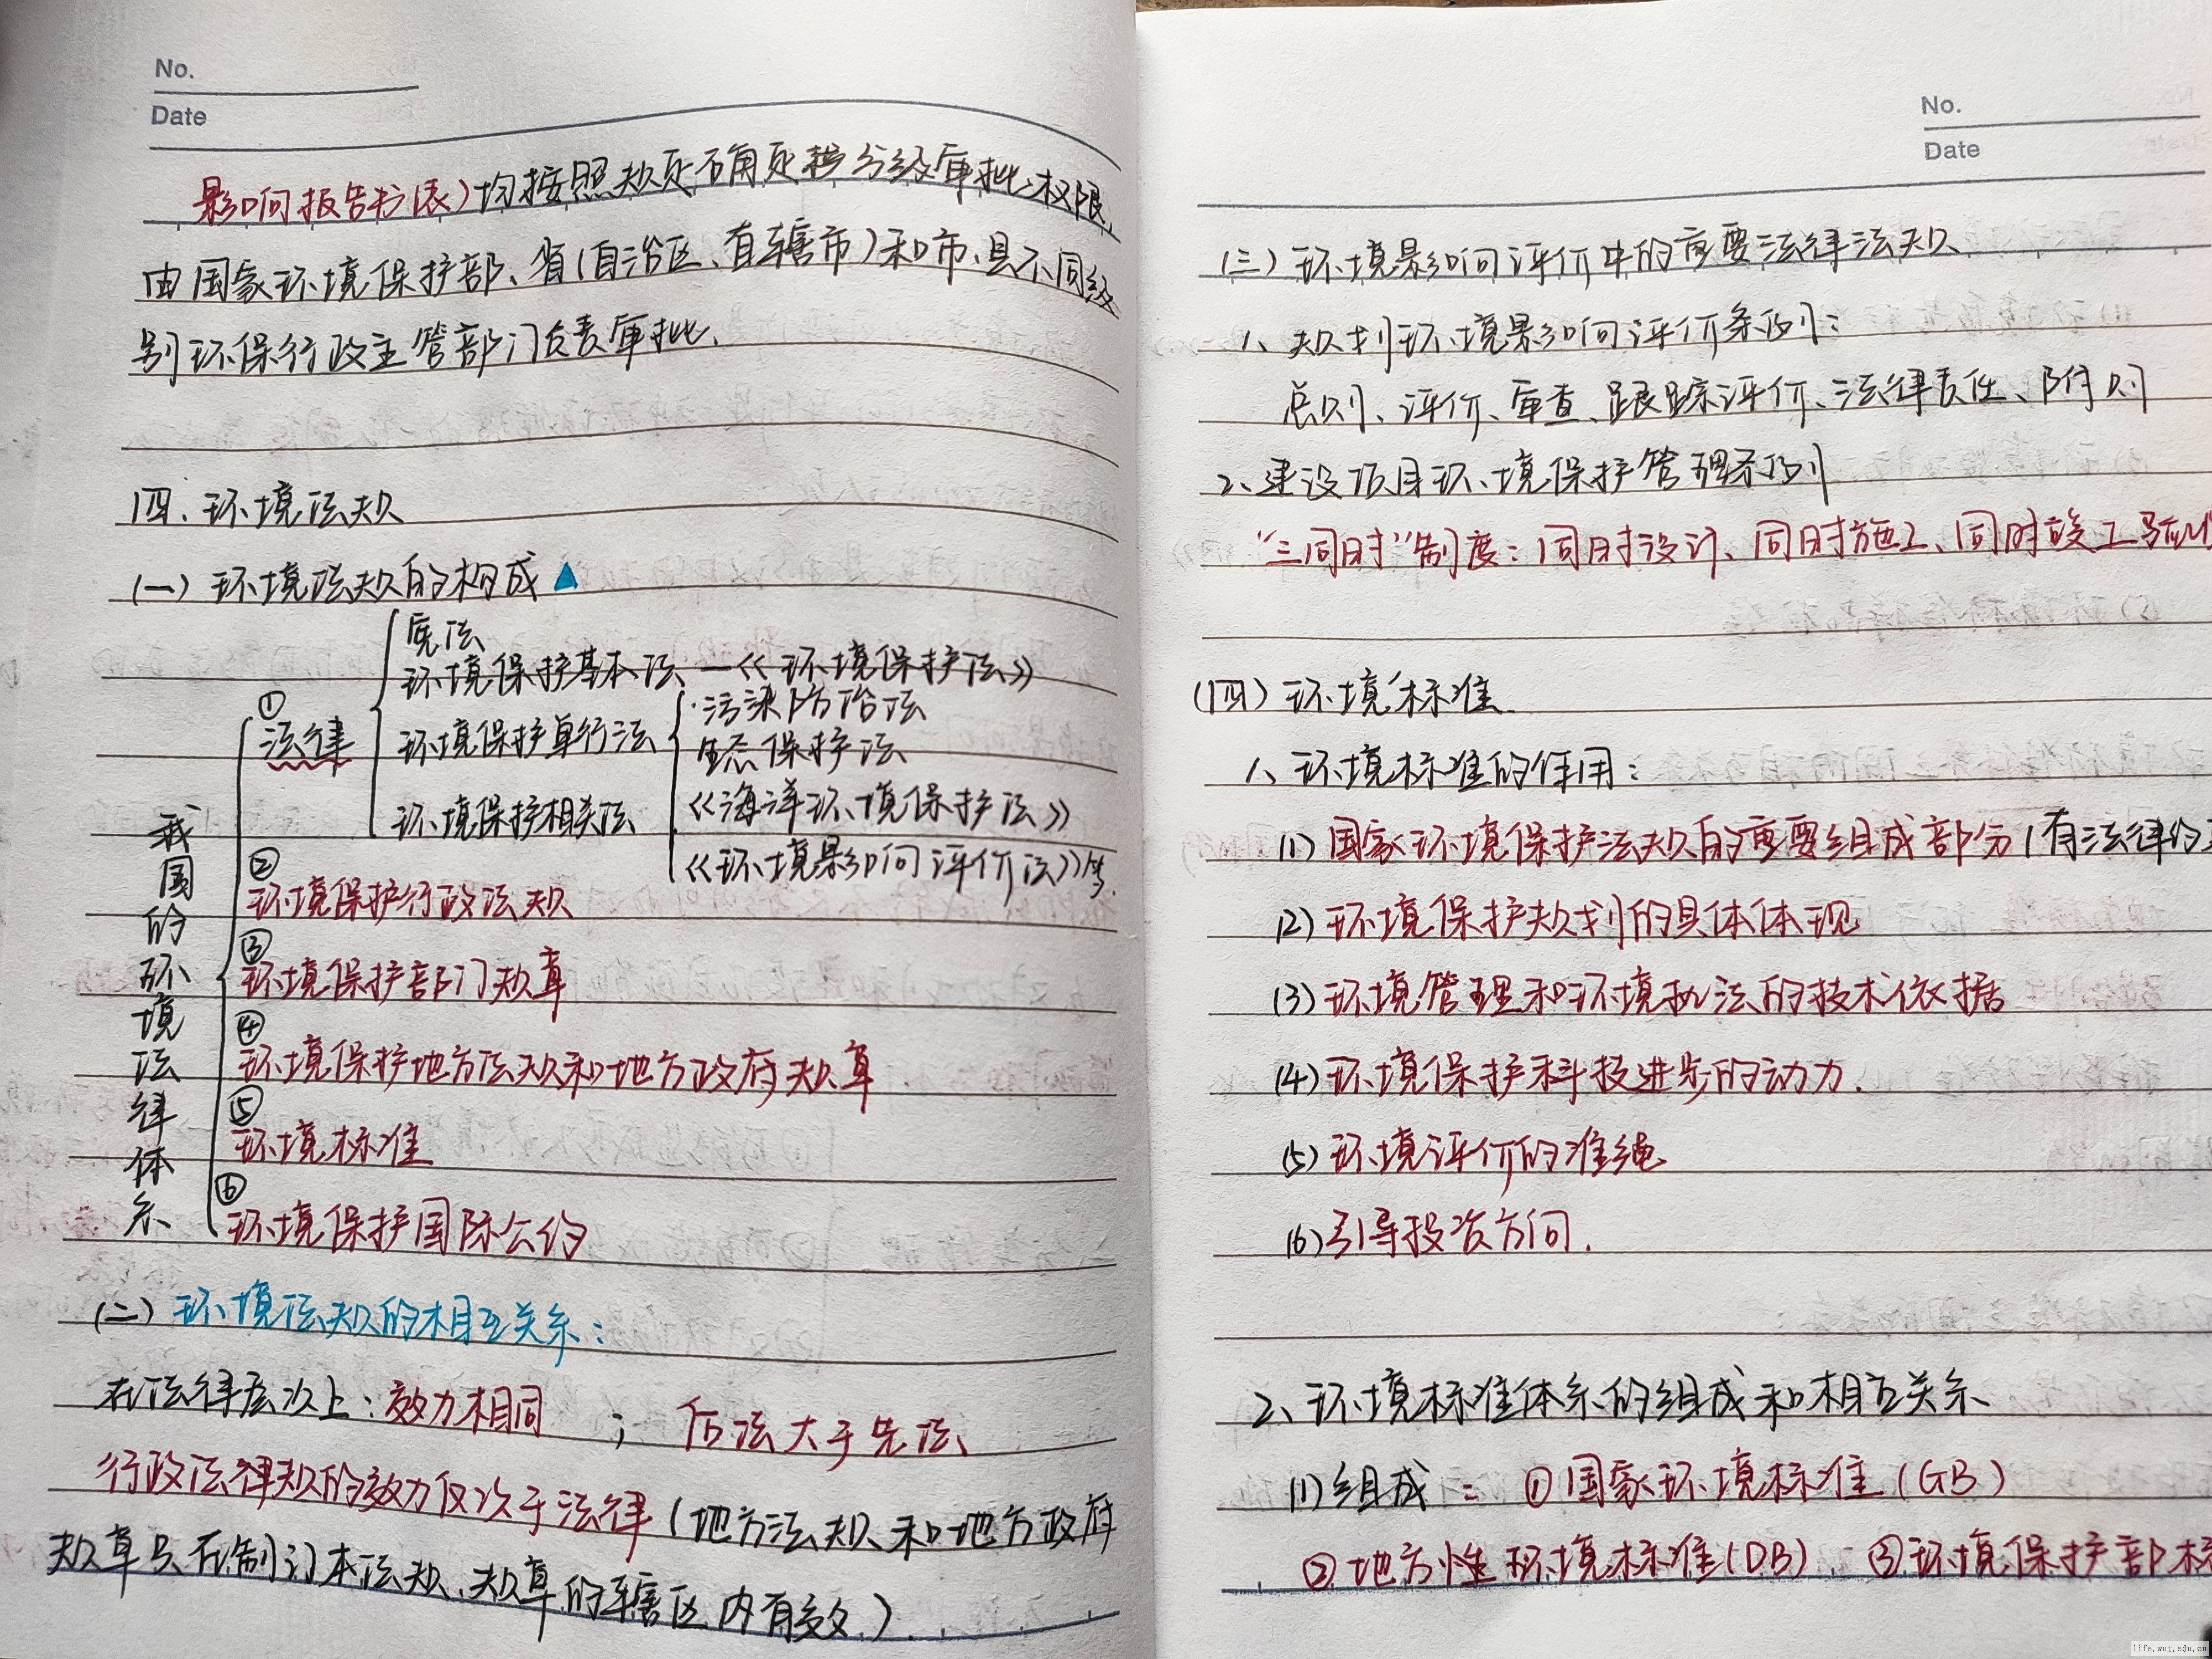 No.
Date
影响报告书(表)均按照规定确定的分级审批权限,
由国家环境保护部、省(自治区、直辖市)和市、县不同级
别环保行政主管部门负责审批.
四.环境法规
(一)环境法规的构成▲
我国的环境法律体系
①
法律
宪法
环境保护基本法—《环境保护法》
环境保护单行法
环境保护相关法
污染防治法
生态保护法
《海洋环境保护法》
《环境影响评价法》等.
②
环境保护行政法规
③
环境保护部门规章
④
环境保护地方法规和地方政府规章.
⑤
环境标准
⑥
环境保护国际公约
(二)环境法规的相互关系:
在法律层次上:效力相同 ; 后法大于先法、
行政法律规的效力仅次于法律(地方法规和地方政府
规章只在制订本法规、规章的辖区内有效).
No.
Date
(三)环境影响评价中的重要法律法规
1、规划环境影响评价条例:
总则、评价、审查、跟踪评价、法律责任、附则
2、建设项目环境保护管理条例
“三同时”制度:同时设计、同时施工、同时竣工验收
(四)环境标准.
1、环境标准的作用:
(1)国家环境保护法规的重要组成部分(有法律约
(2)环境保护规划的具体体现
(3)环境管理和环境执法的技术依据
(4)环境保护科技进步的动力.
(5)环境评价的准绳
(6)引导投资方向.
2、环境标准体系的组成和相互关系
(1)组成: ①国家环境标准(GB)
②地方性环境标准(DB) ③环境保护部标
life.wut.edu.cn